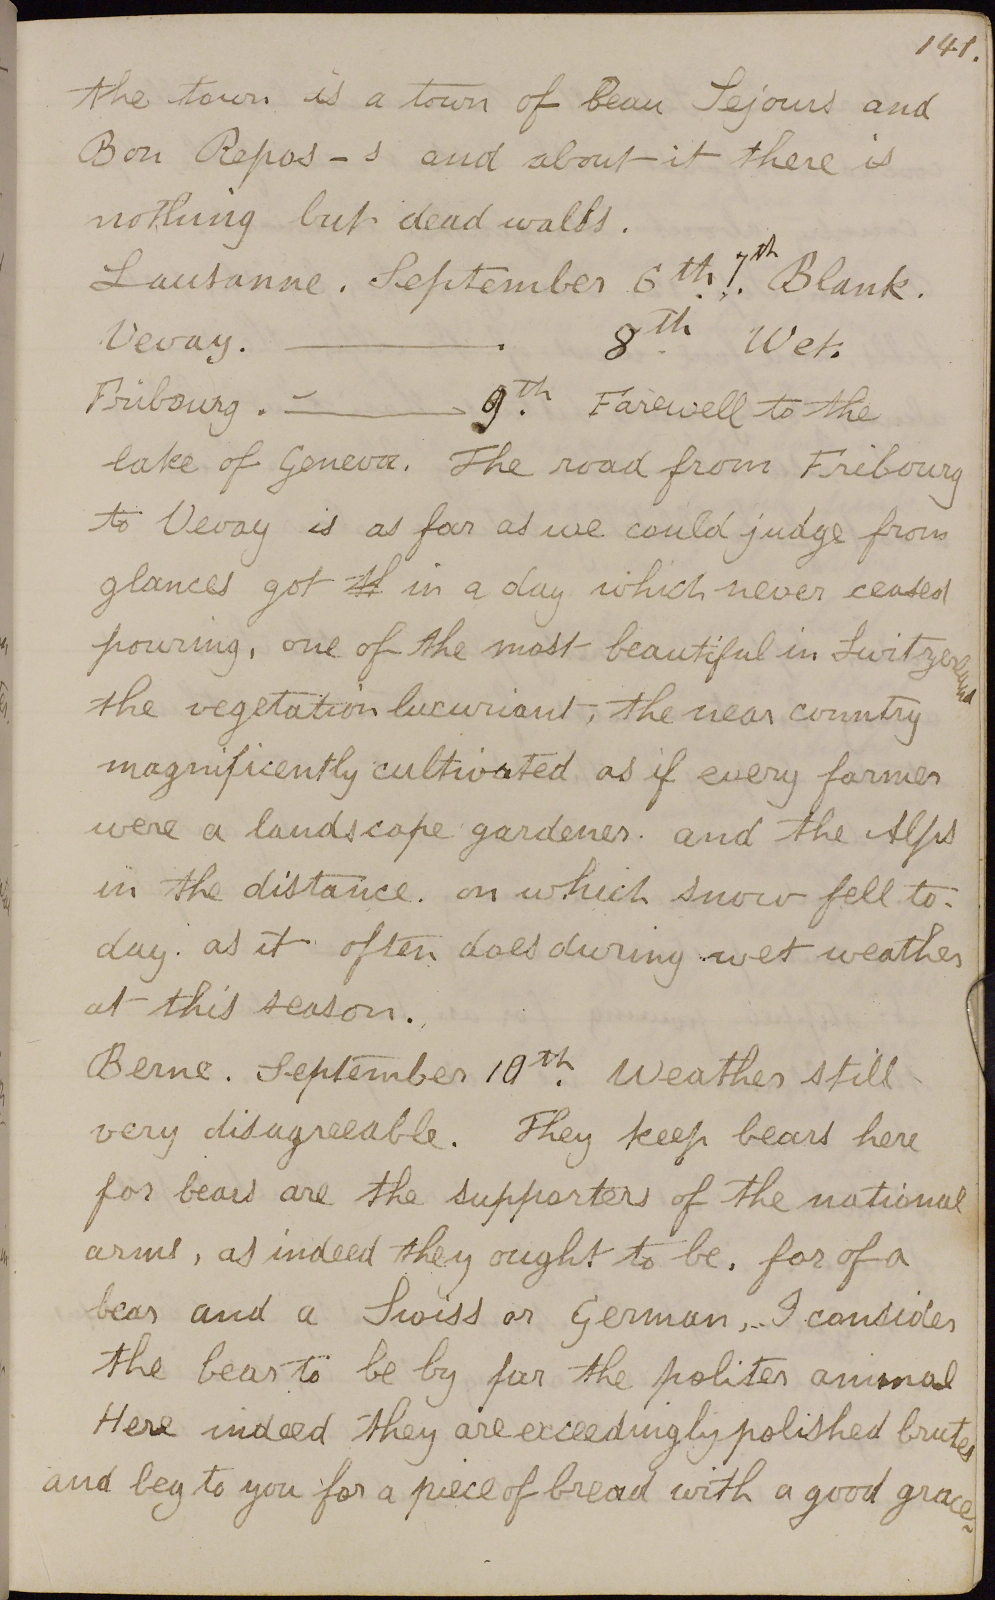 141.
the town is a town of beau Sejours and
Bon Repos-s and about it there is
nothing but dead walls.
Lausanne. September 6th. 7th. Blank.
Vevay. ———. 8th Wet.
Fribourg. ——— 9th. Farewell to the
lake of Geneva. The road from Fribourg
to Vevay is as far as we could judge from
glances got in a day which never ceased
pouring, one of the most beautiful in Switzerland
the vegetation luxuriant, the near country
magnificently cultivated as if every farmer
were a landscape gardener. and the Alps
in the distance. on which snow fell to-
day. as it often does during wet weather
at this season.
Berne. September 10th. Weather still
very disagreeable. They keep bears here
for bears are the supporters of the national
arms, as indeed they ought to be. for of a
bear and a Swiss or German, I consider
the bear to be by far the politer animal
Here indeed they are exceedingly polished brutes
and beg to you for a piece of bread with a good grace-